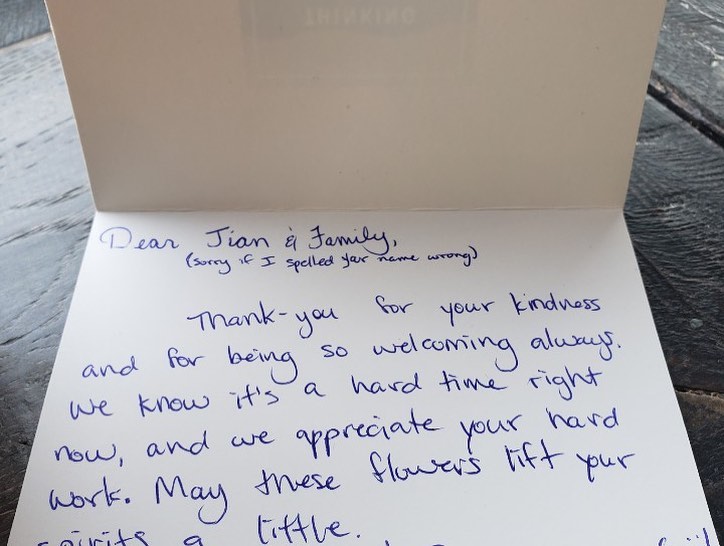 THINKING
Dear Jian & Family,
(sorry if I spelled yar name wrong)
Thank-you for your kindness
and for being so welcoming always.
We know it's a hard time right
now, and we appreciate your hard
work. May these flowers lift your
spirits a little.